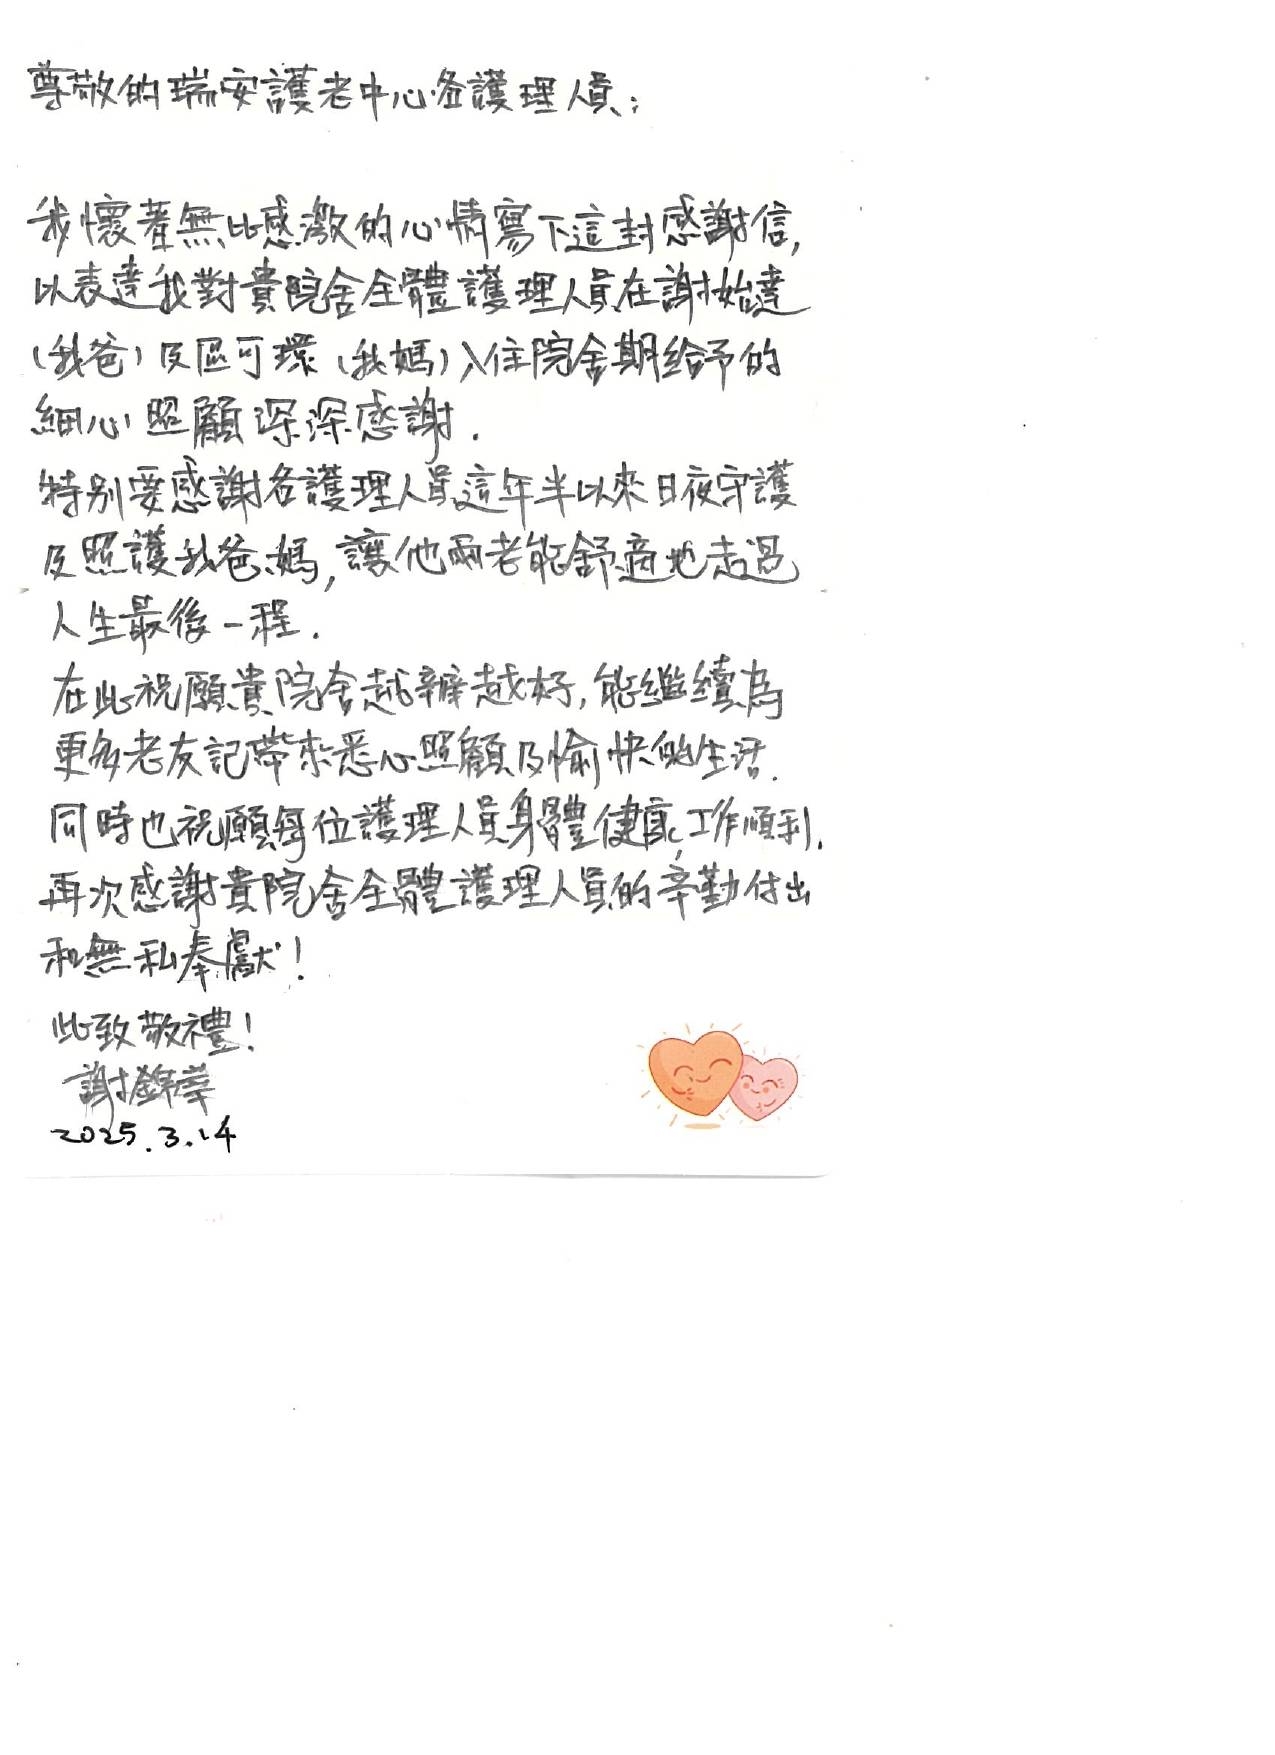 尊敬的瑞安護老中心各護理人員:
我懷著無比感激的心情寫下這封感謝信,
以表達我對貴院舍全體護理人員在謝始達
(我爸)及區可環(我媽)入住院舍期給予的
細心照顧深深感謝.
特別要感謝各護理人員這年半以來日夜守護
及照護我爸媽,讓他兩老能舒適地走過
人生最後一程.
在此祝願貴院舍越辦越好,能繼續為
更多老友記帶來悉心照顧及愉快的生活.
同時也祝願每位護理人員身體健康,工作順利.
再次感謝貴院舍全體護理人員的辛勤付出
和無私奉獻!
此致敬禮!
謝錦
2025.3.14